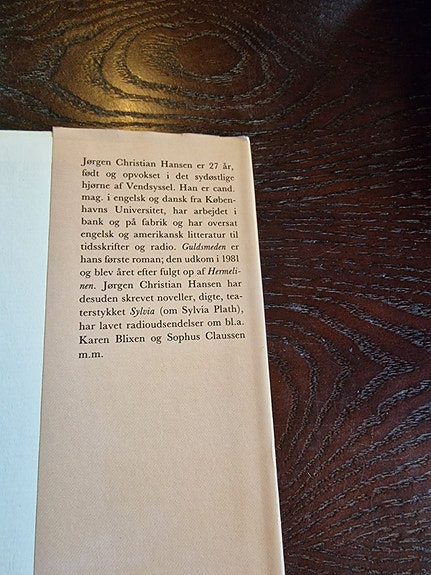 Jørgen Christian Hansen er 27 år,
født og opvokset i det sydøstlige
hjørne af Vendsyssel. Han er cand.
mag. i engelsk og dansk fra Køben-
havns Universitet, har arbejdet i
bank og på fabrik og har oversat
engelsk og amerikansk litteratur til
tidsskrifter og radio. Guldsmeden er
hans første roman; den udkom i 1981
og blev året efter fulgt op af Hermeli-
nen. Jørgen Christian Hansen har
desuden skrevet noveller, digte, tea-
terstykket Sylvia (om Sylvia Plath),
har lavet radioudsendelser om bl.a.
Karen Blixen og Sophus Claussen
m.m.